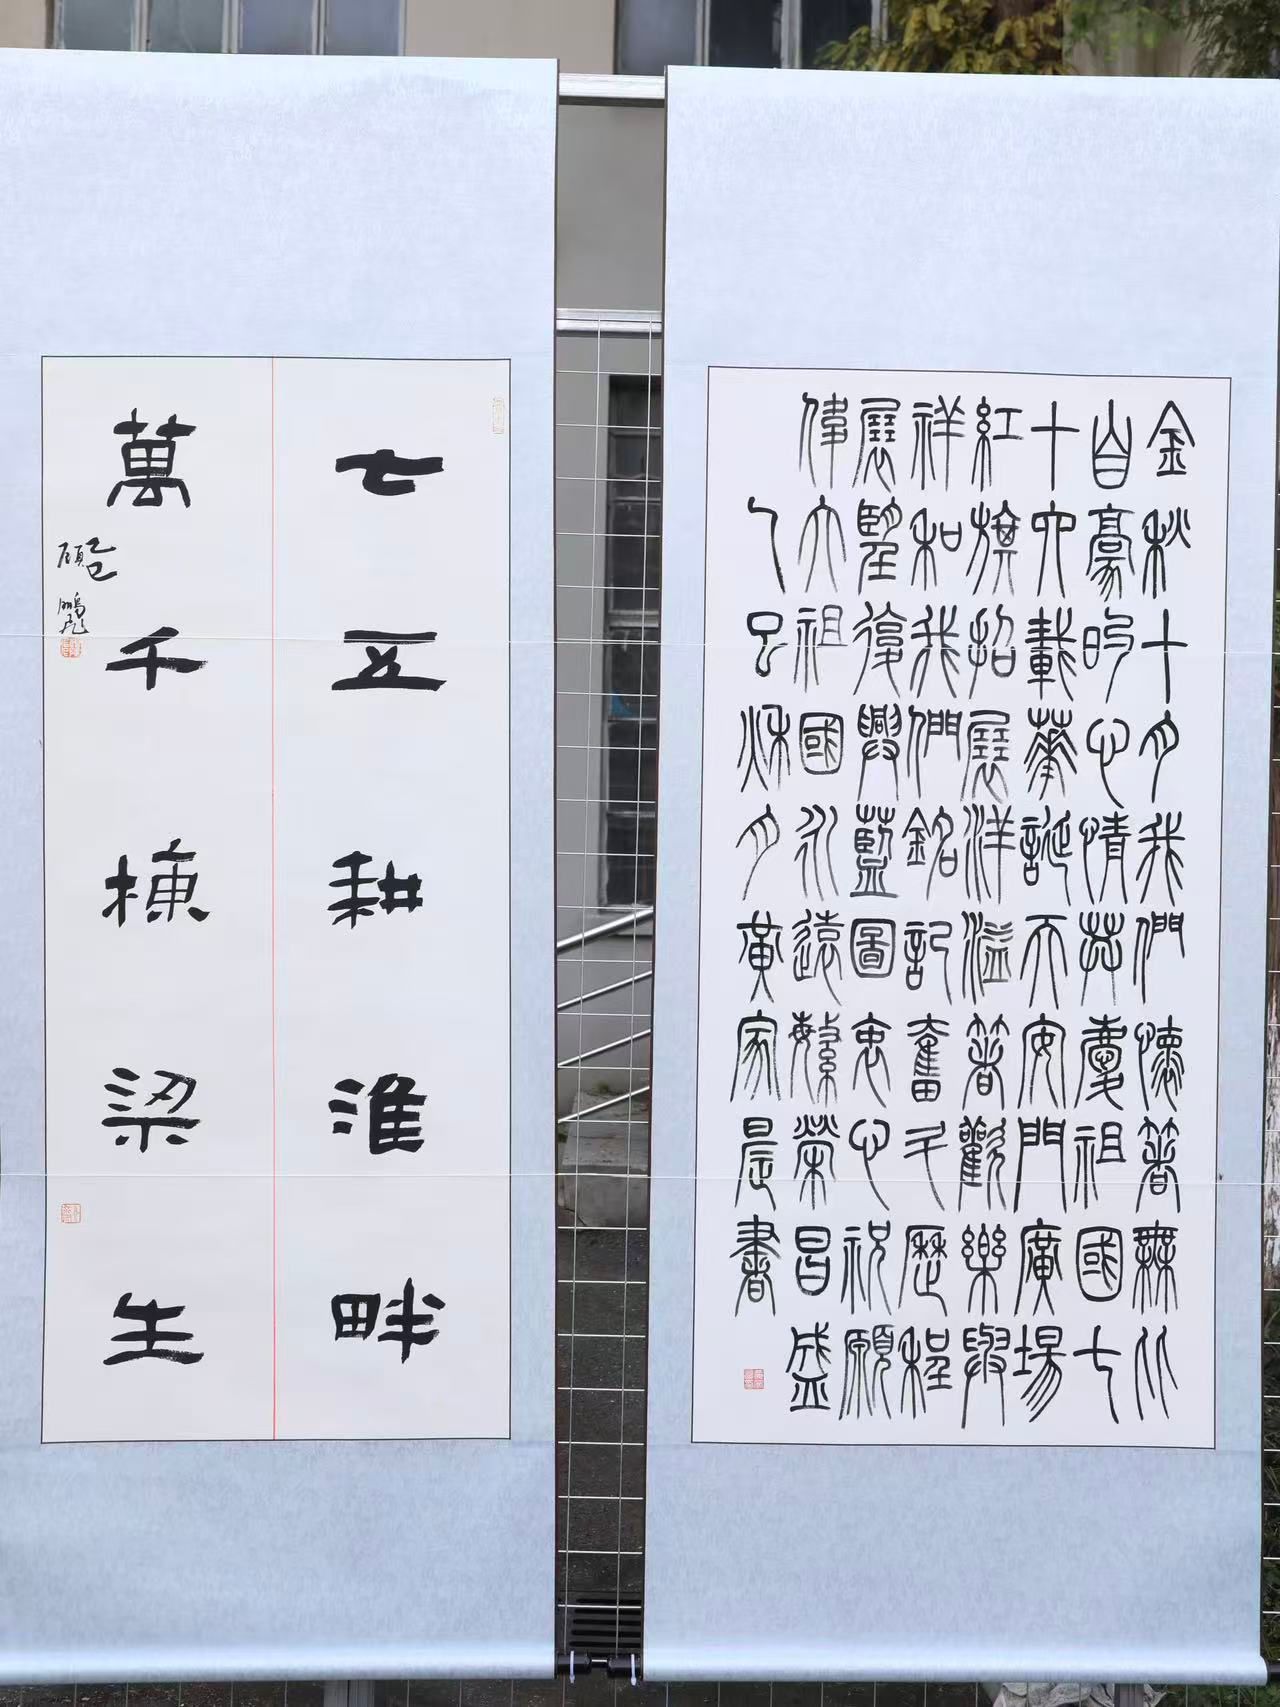 金秋十月我們懷着無比
自豪的心情共慶祖國七
十六載華誕天安門廣場
紅旗招展洋溢着歡樂與
祥和我們銘記奮斗歷程
展望復興藍圖衷心祝願
偉大祖國永遠繁榮昌盛
乙巳秋月黃家晨書
七五耕淮畔
萬千棟梁生
乙巳
顧鵬飛